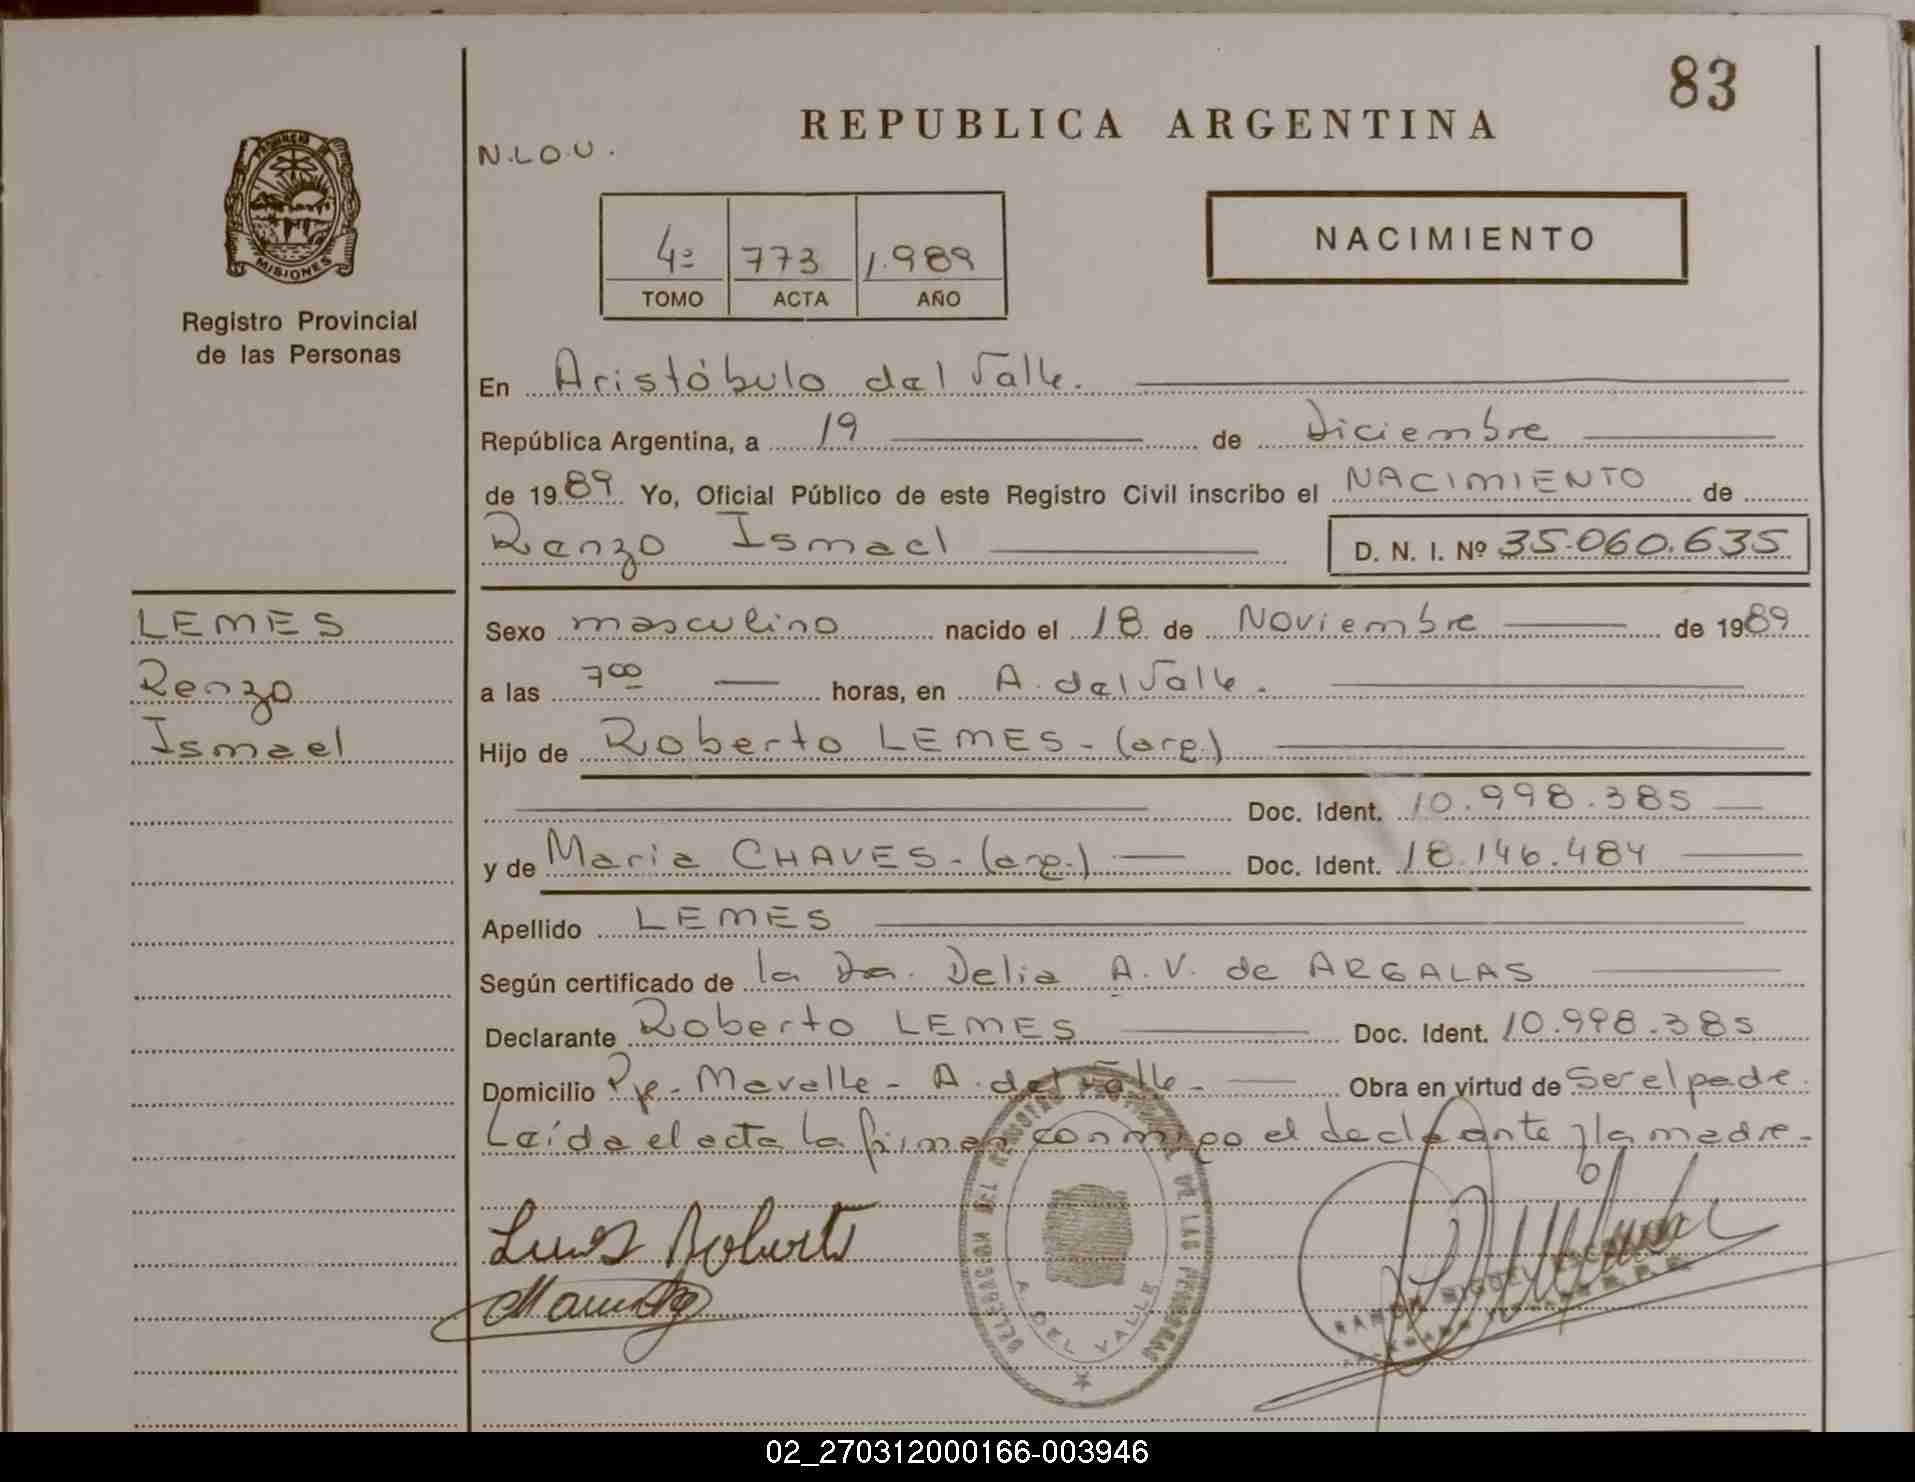 83
REPUBLICA ARGENTINA
N.L.O.U.
PROVINCIA DE
MISIONES
Registro Provincial
de las Personas
4º 773 1.989
TOMO ACTA AÑO
NACIMIENTO
En Aristóbulo del Valle.
República Argentina, a 19 de Diciembre
de 1989 Yo, Oficial Público de este Registro Civil inscribo el NACIMIENTO de
Renzo Ismael D. N. I. Nº 35.060.635
LEMES
Renzo
Ismael
Sexo masculino nacido el 18 de Noviembre de 1989
a las 7 00 horas, en A. del Valle.
Hijo de Roberto LEMES - (arg.)
Doc. Ident. 10.998.385
y de Maria CHAVES - (arg.) Doc. Ident. 18.146.484
Apellido LEMES
Según certificado de la Dra. Delia A. V. de ARGALAS
Declarante Roberto LEMES Doc. Ident. 10.998.385
Domicilio - A. del Valle - Obra en virtud de Ser el padre.
Leída el acta la firman conmigo el declarante y la madre.
Lemes Roberto
DELEGACION DEL REGISTRO PROVINCIAL DE LAS PERSONAS
A. DEL VALLE
RAMON MIGUEL
02_270312000166-003946